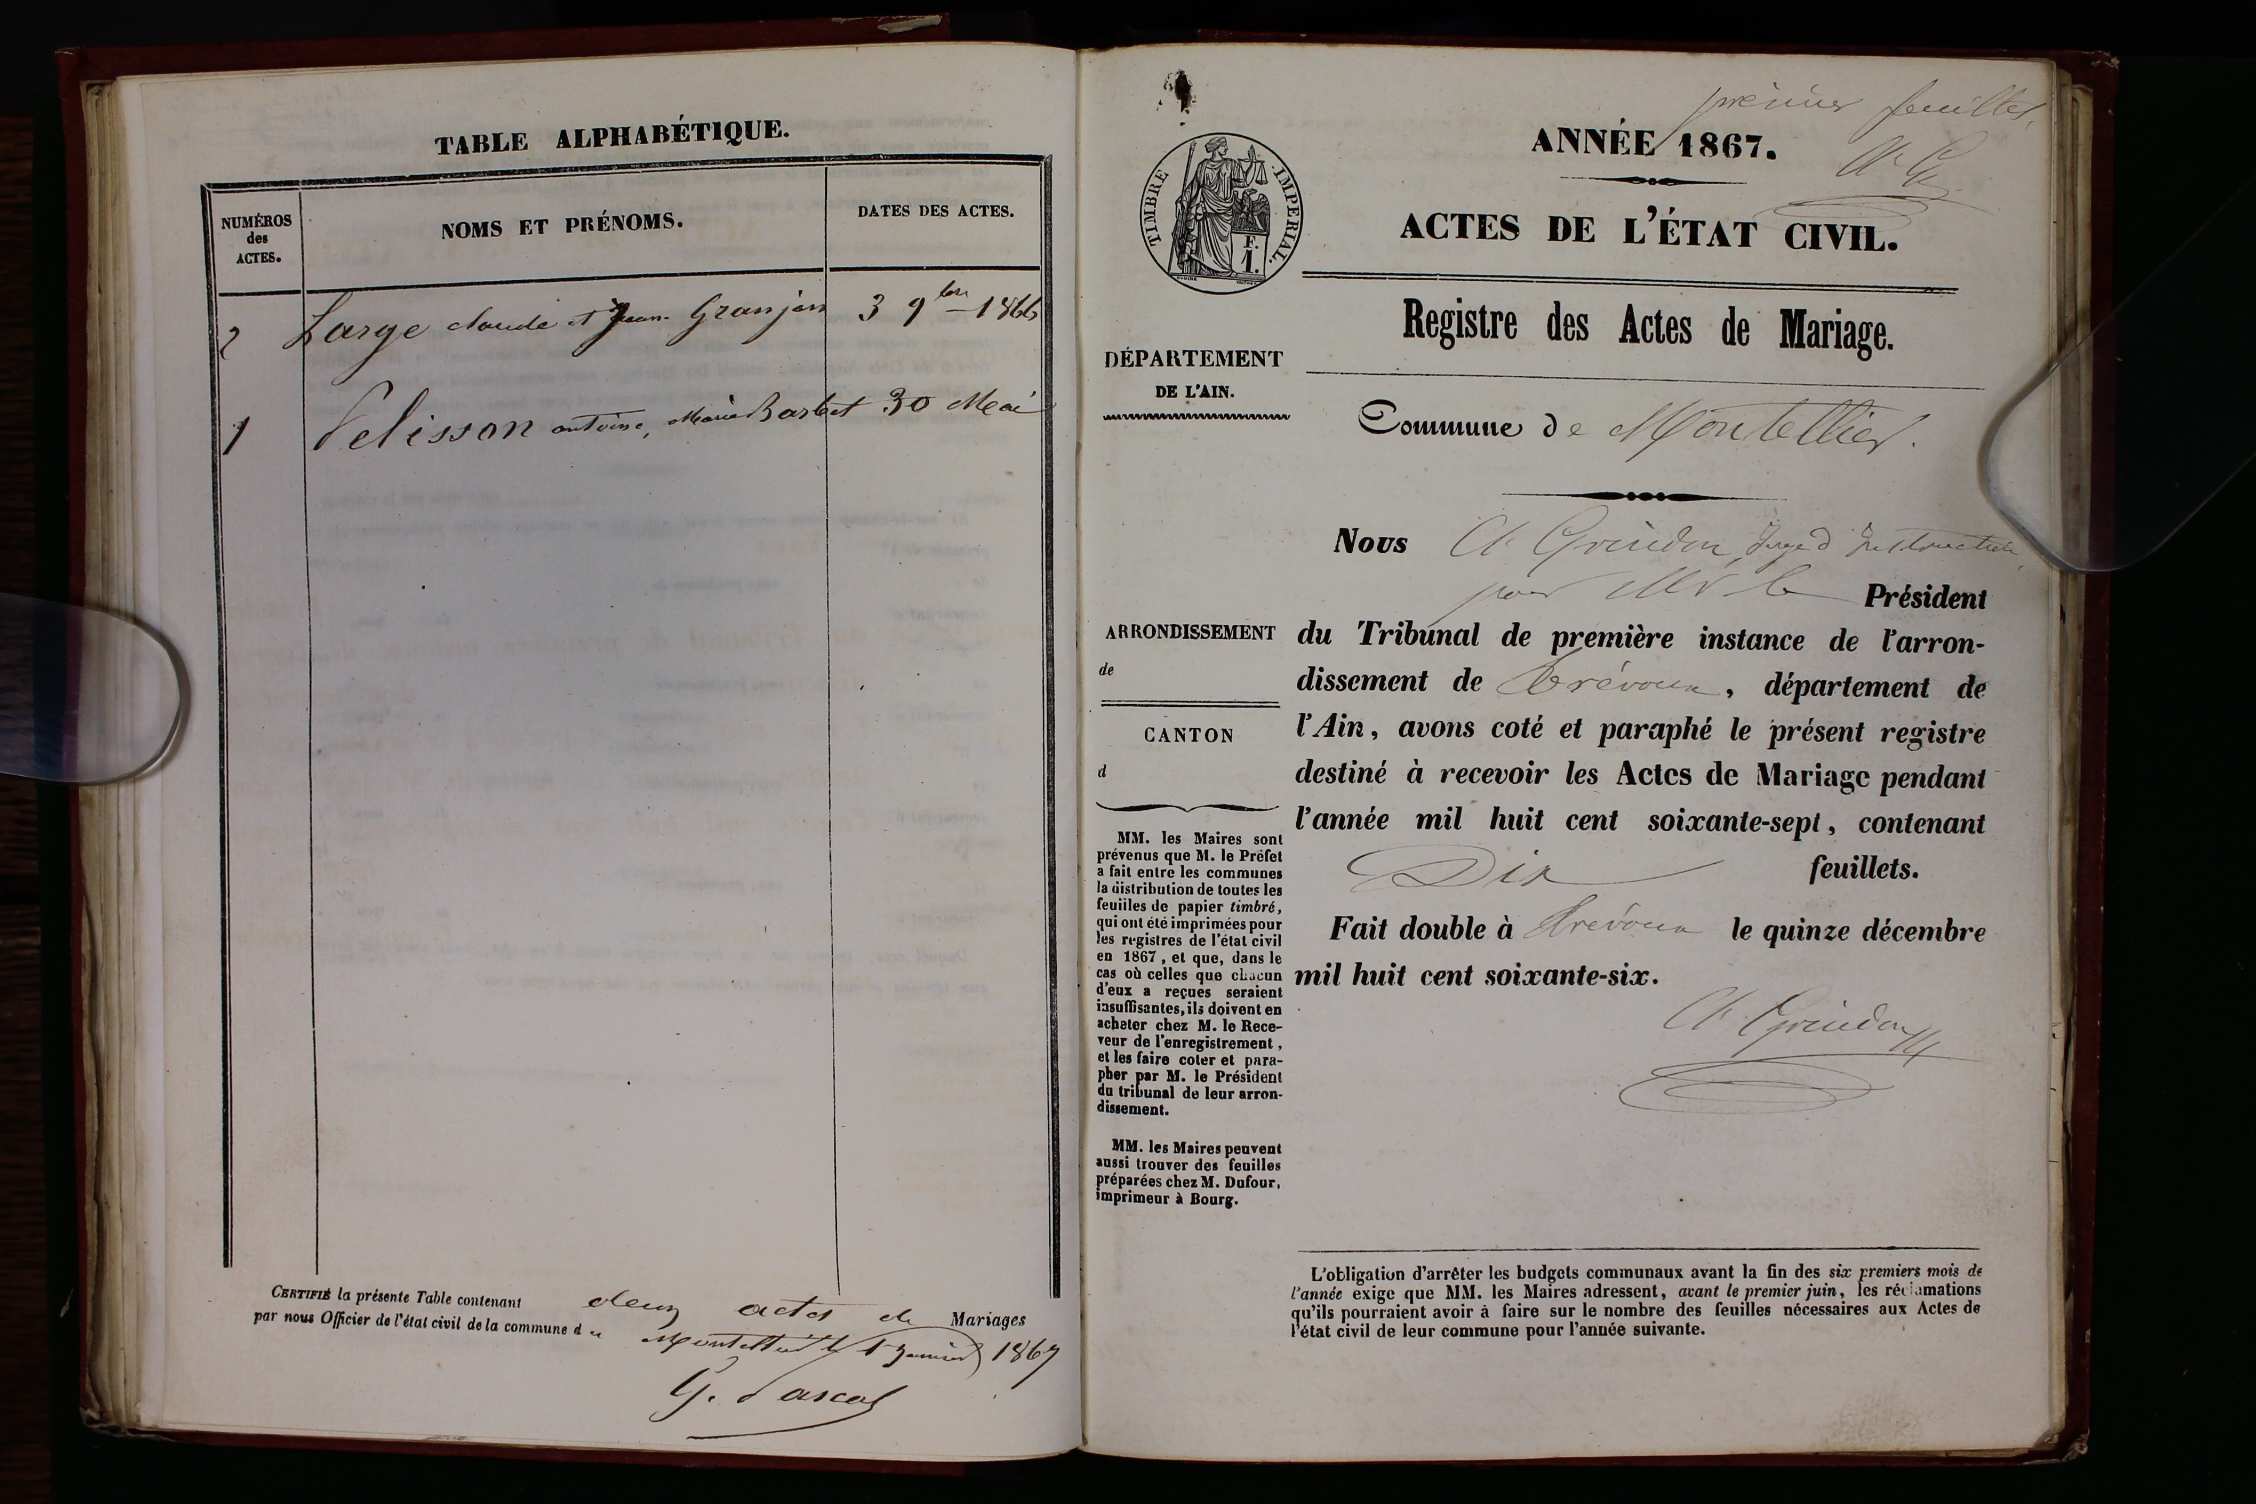 TABLE ALPHABÉTIQUE.
NUMÉROS
des
ACTES.
NOMS ET PRÉNOMS.
DATES DES ACTES.
2 Large claude et Jean Granjan 3 9bre 1866
1 Pelisson antoine, Marie Barbet 30 Mai
CERTIFIÉ la présente Table contenant deux actes de Mariages
par nous Officier de l'état civil de la commune de Montellier le 1 Janvier 1867
G. Pascal
premier feuillet.
Ch G
ANNÉE 1867.
TIMBRE IMPERIAL.
F.
1.
ACTES DE L'ÉTAT CIVIL.
Registre des Actes de Mariage.
DÉPARTEMENT
DE L'AIN.
Commune de Montellier.
Nous Ch Grindon, Juge d'Instruction,
pour Mr le Président
ARRONDISSEMENT
de
CANTON
d
du Tribunal de première instance de l'arron-
dissement de Trévoux, département de
l'Ain, avons coté et paraphé le présent registre
destiné à recevoir les Actes de Mariage pendant
l'année mil huit cent soixante-sept, contenant
Dix feuillets.
Fait double à Trévoux le quinze décembre
mil huit cent soixante-six.
Ch. Grindon
MM. les Maires sont
prévenus que M. le Préfet
a fait entre les communes
la distribution de toutes les
feuilles de papier timbré,
qui ont été imprimées pour
les registres de l'état civil
en 1867, et que, dans le
cas où celles que chacun
d'eux a reçues seraient
insuffisantes, ils doivent en
acheter chez M. le Rece-
veur de l'enregistrement,
et les faire coter et para-
pher par M. le Président
du tribunal de leur arron-
dissement.
MM. les Maires peuvent
aussi trouver des feuilles
préparées chez M. Dufour,
imprimeur à Bourg.
L'obligation d'arrêter les budgets communaux avant la fin des six premiers mois de
l'année exige que MM. les Maires adressent, avant le premier juin, les réclamations
qu'ils pourraient avoir à faire sur le nombre des feuilles nécessaires aux Actes de
l'état civil de leur commune pour l'année suivante.